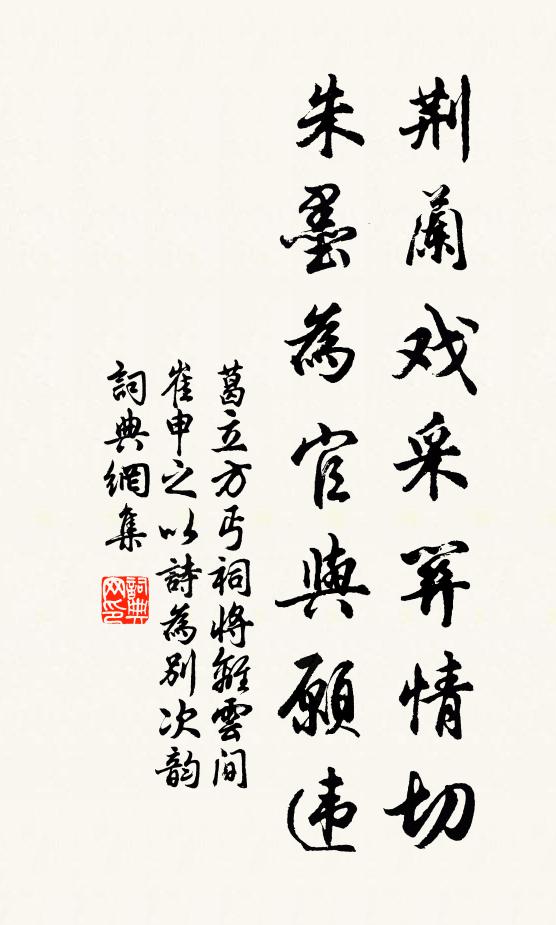 荆蘭戏采笄情切
朱墨為官與願违
葛立方丐祠將離雲间
崔申之以詩為别次韵
詞典網集
詞典
网印